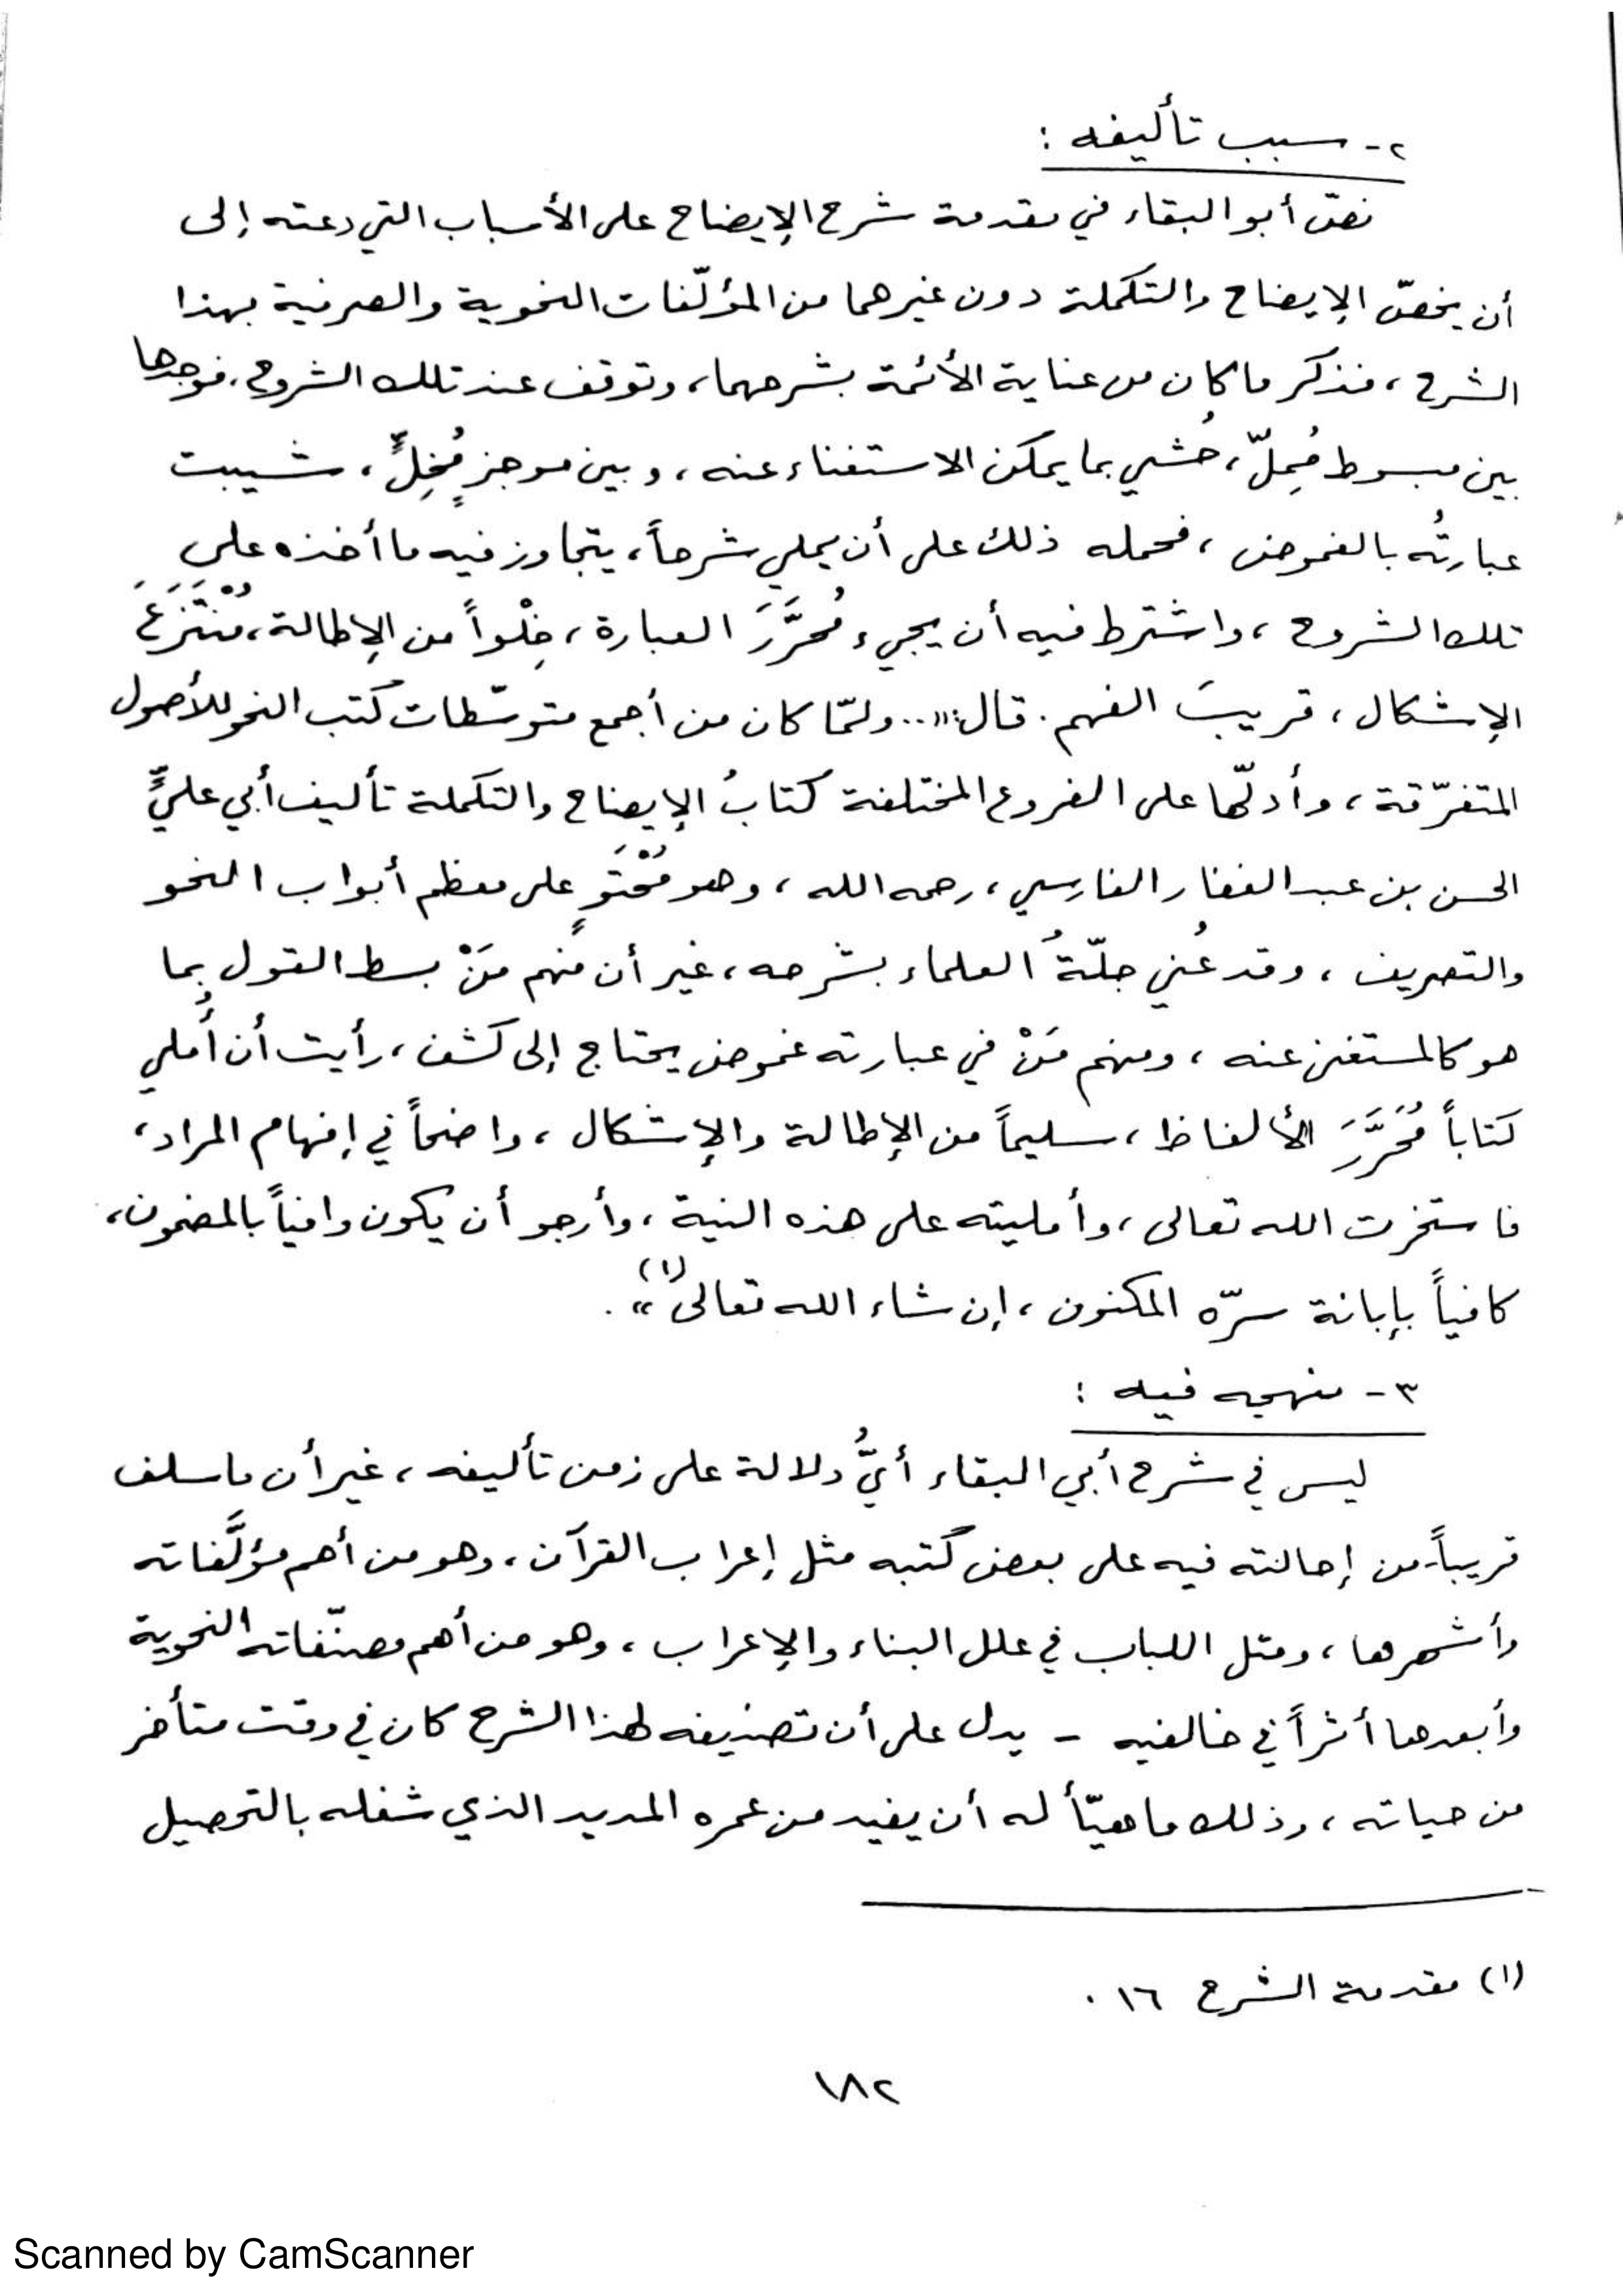 ٢- سبب تأليفه :
نصّ أبو البقاء في مقدمة شرح الإيضاح على الأسباب التي دعته إلى
أن يخصّ الإيضاح والتكملة دون غيرهما من المؤلّفات النحوية والصرفية بهذا
الشرح ، فذكر ما كان من عناية الأئمة بشرحهما، وتوقف عند تلك الشروح، فوجدها
بين مبسوط مُمِلّ، حُشي بما يمكن الاستغناء عنه ، وبين موجزٍ مُخِلٍّ ، شيبت
عبارتُه بالغموض ، فحمله ذلك على أن يملي شرحاً، يتجاوز فيه ما أخذه على
تلك الشروح ، واشترط فيه أن يجيء مُحرَّرَ العبارة ، خِلْواً من الإطالة ، مُنْتَزَعَ
الإشكال ، قريبَ الفهم . قال: «.. ولمّا كان من أجمع متوسّطات كتب النحو للأصول
المتفرّقة ، وأدلّها على الفروع المختلفة كتابُ الإيضاح والتكملة تأليف أبي عليٍّ
الحسن بن عبد الغفار الفارسي ، رحمه الله ، وهو مُحْتَوٍ على معظم أبواب النحو
والتصريف ، وقد عُني جلّةُ العلماء بشرحه ، غير أن منهم مَنْ بسط القول بما
هو كالمستغنى عنه ، ومنهم مَنْ في عبارته غموض يحتاج إلى كشف ، رأيت أن أُملي
كتاباً مُحَرَّرَ الألفاظ ، سليماً من الإطالة والإشكال ، واضحاً في إفهام المراد ،
فاستخرت الله تعالى ، وأمليته على هذه النية ، وأرجو أن يكون وافياً بالمضمون ،
كافياً بإبانة سرّه المكنون ، إن شاء الله تعالى »(١) .
٣- منهجه فيه :
ليس في شرح أبي البقاء أيُّ دلالة على زمن تأليفه ، غير أن ما سلف
قريباً- من إحالته فيه على بعض كتبه مثل إعراب القرآن ، وهو من أهم مؤلَّفاته
وأشهرها ، ومثل اللباب في علل البناء والإعراب ، وهو من أهم مصنّفاته النحوية
وأبعدها أثراً في خالفيه - يدل على أن تصنيفه لهذا الشرح كان في وقت متأخر
من حياته ، وذلك ما هيّأ له أن يفيد من عمره المديد الذي شغله بالتحصيل
(١) مقدمة الشرح ١٦ .
١٨٢
Scanned by CamScanner